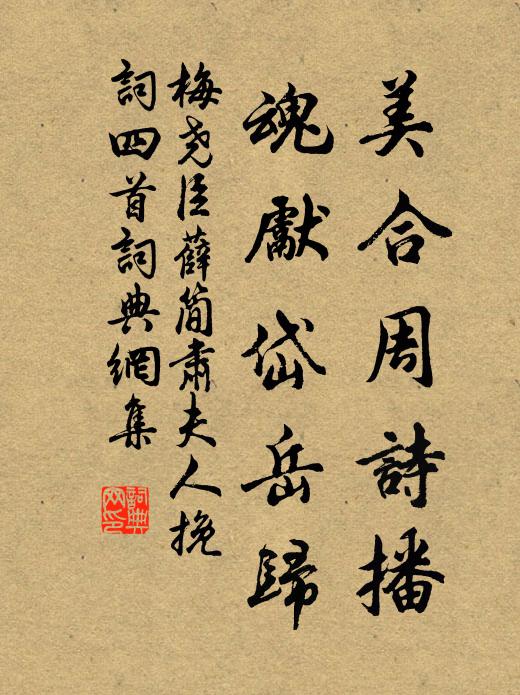 美合周詩播
魂獻岱岳歸
梅尧臣薛簡肅夫人挽
詞四首詞典網集
詞典网印